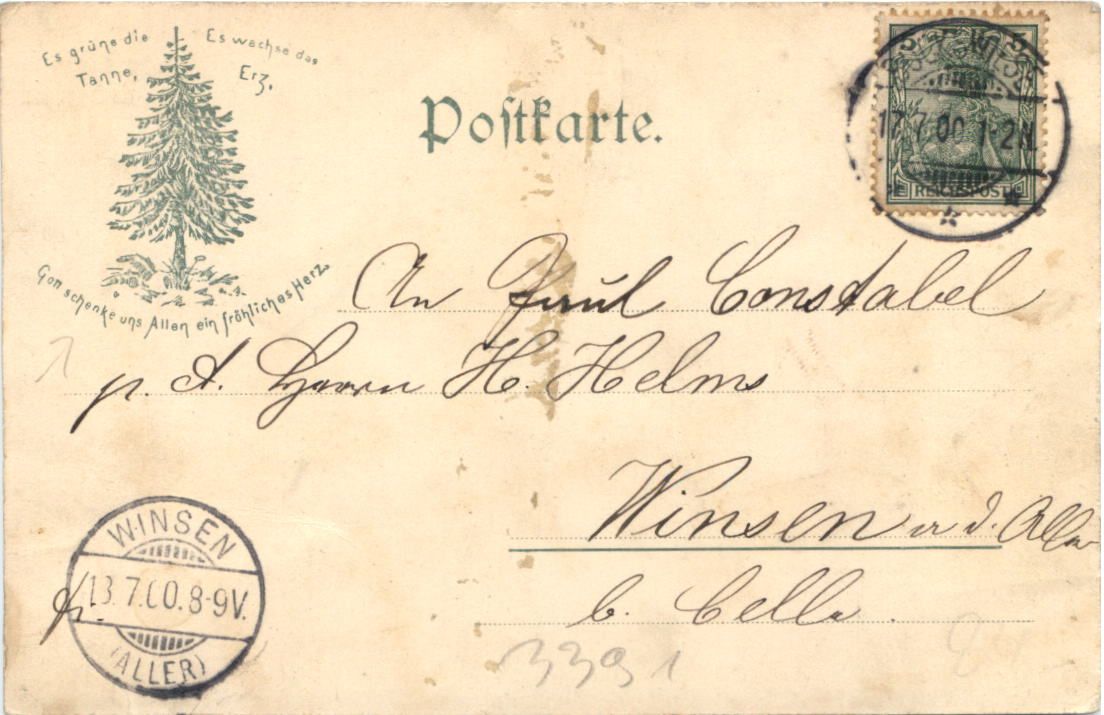 Es grüne die Tanne,
Es wachse das Erz.
Gott schenke uns Allen ein fröhliches Herz.
Postkarte.
17.7.00 1-2N.
REICHSPOST
An Paul Constabel
p. A. Herrn H. Helms
Winsen a. d. Aller
b. Celle.
WINSEN
18.7.00.8-9V.
(ALLER)
3391